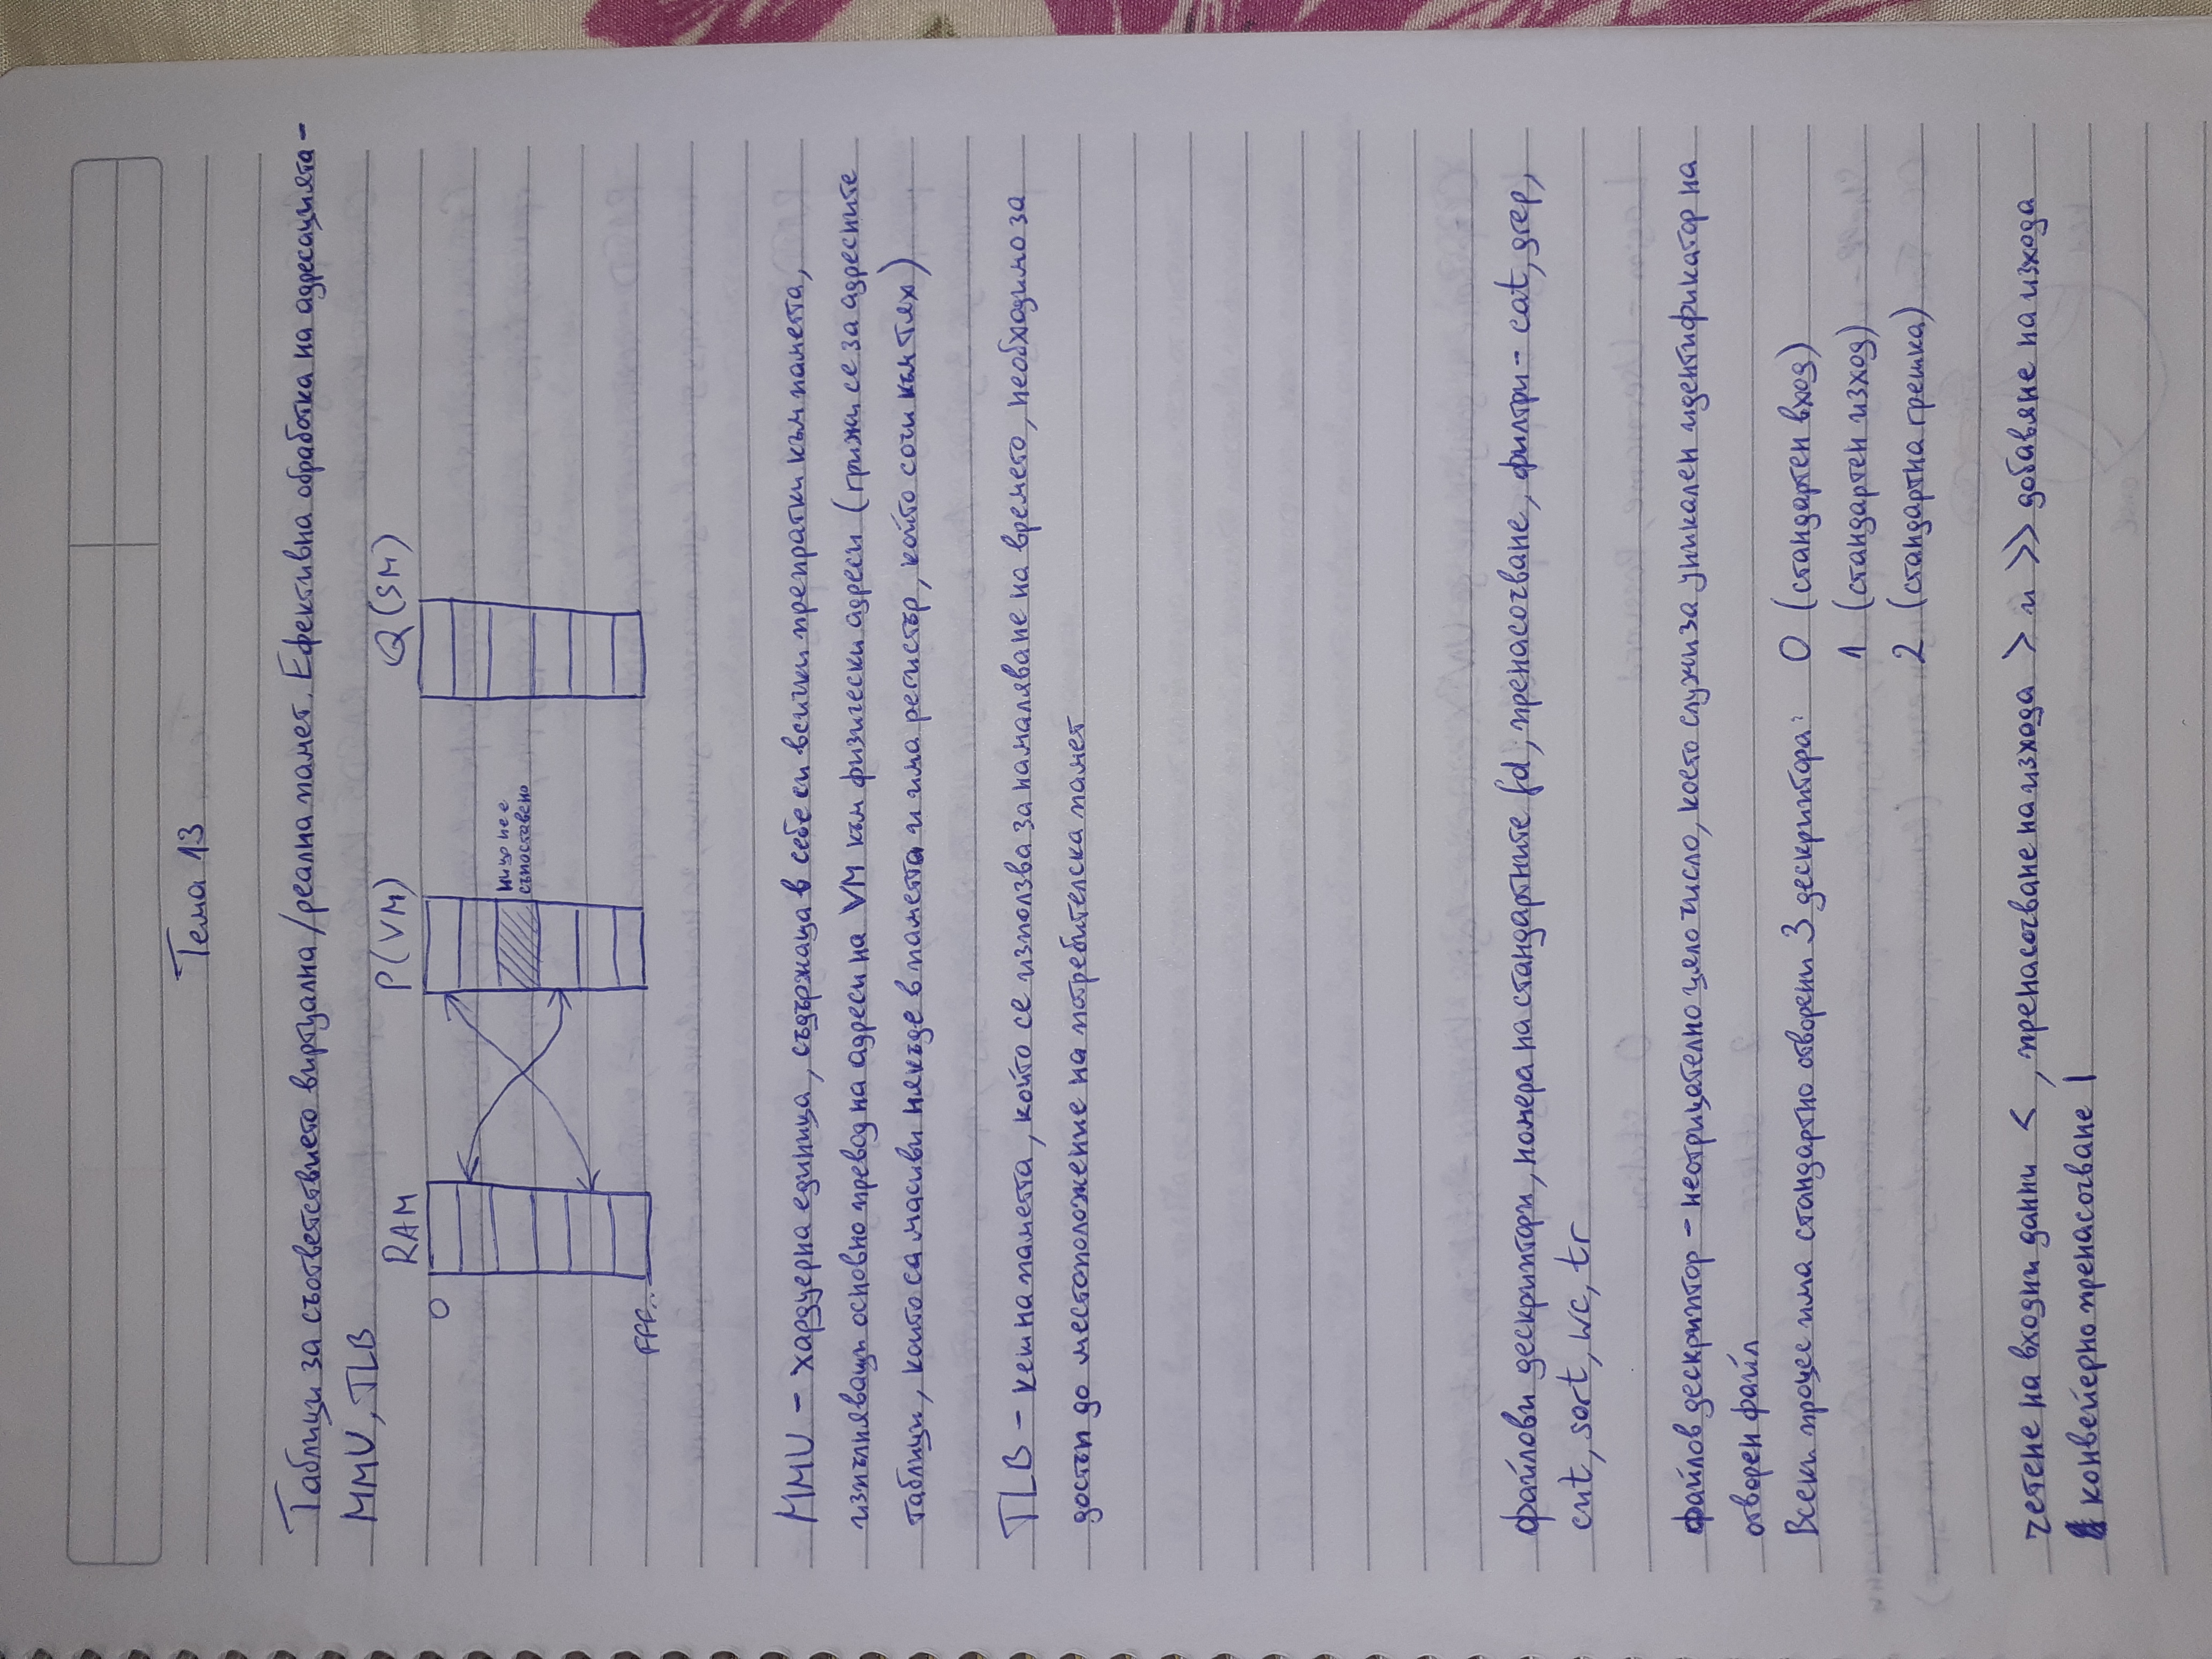 Тема 13
Таблици за съответствието виртуална/реална памет. Ефективна обработка на адресацията -
MMU, TLB
RAM P(VM) Q(SM)
0
нищо не е
съпоставено
FFF..
MMU - хардуерна единица, съдържаща в себе си всички препратки към паметта,
изпълняващи основно превод на адреси на VM към физически адреси (грижи се за адресните
таблици, които са масиви някъде в паметта и има регистър, който сочи към тях)
TLB - кеш на паметта, който се използва за намаляване на времето, необходимо за
достъп до местоположение на потребителска памет
файлови дескриптори, номера на стандартните fd, пренасочване, филтри - cat, grep,
cut, sort, wc, tr
файлов дескриптор - неотрицателно цяло число, което служи за уникален идентификатор на
отворен файл
Всеки процес има стандартно отворени 3 дескриптора: 0 (стандартен вход)
1 (стандартен изход)
2 (стандартна грешка)
четене на входни данни < , пренасочване на изхода > и >> добавяне на изхода
конвейерно пренасочване |